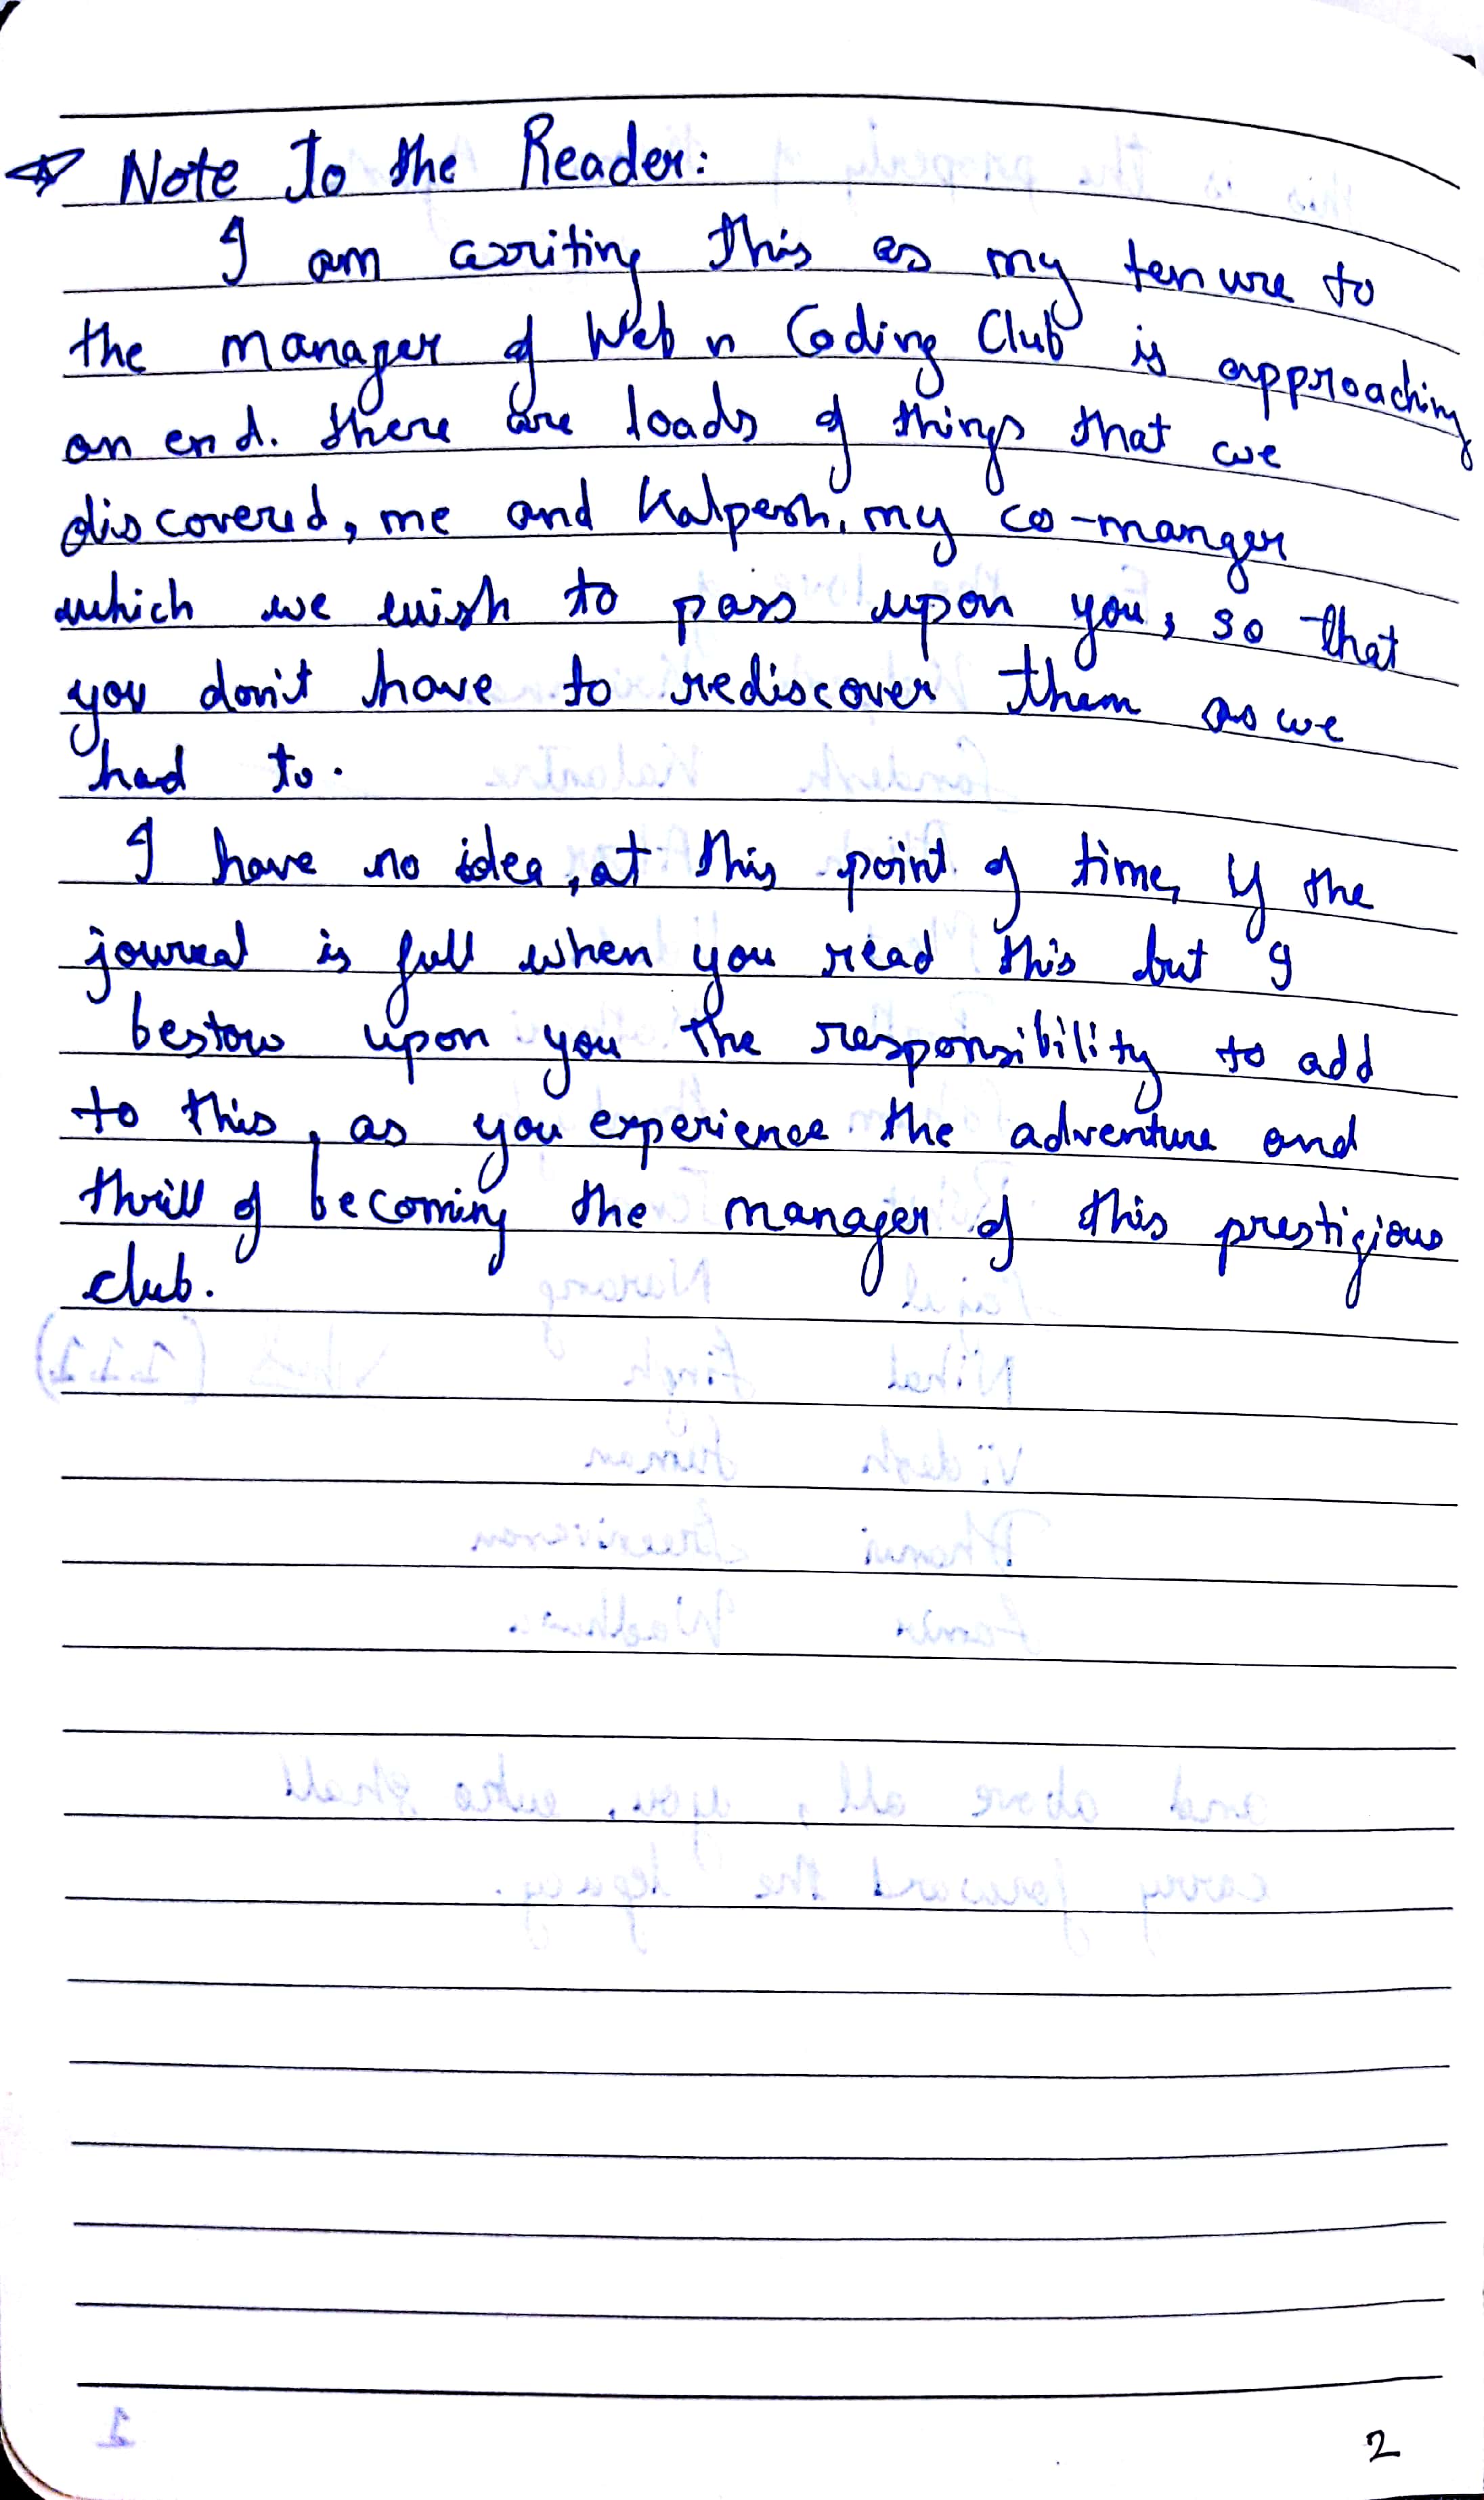 ☆ Note To the Reader:
I am writing this as my tenure to
the manager of Web n Coding Club is approaching
an end. There are loads of things that we
discovered, me and Kalpesh, my co-manger
which we wish to pass upon you, so that
you don't have to rediscover them as we
had to.
I have no idea, at this point of time, if the
journal is full when you read this but I
bestow upon you the responsibility to add
to this, as you experience the adventure and
thrill of becoming the manager of this prestigious
club.
2